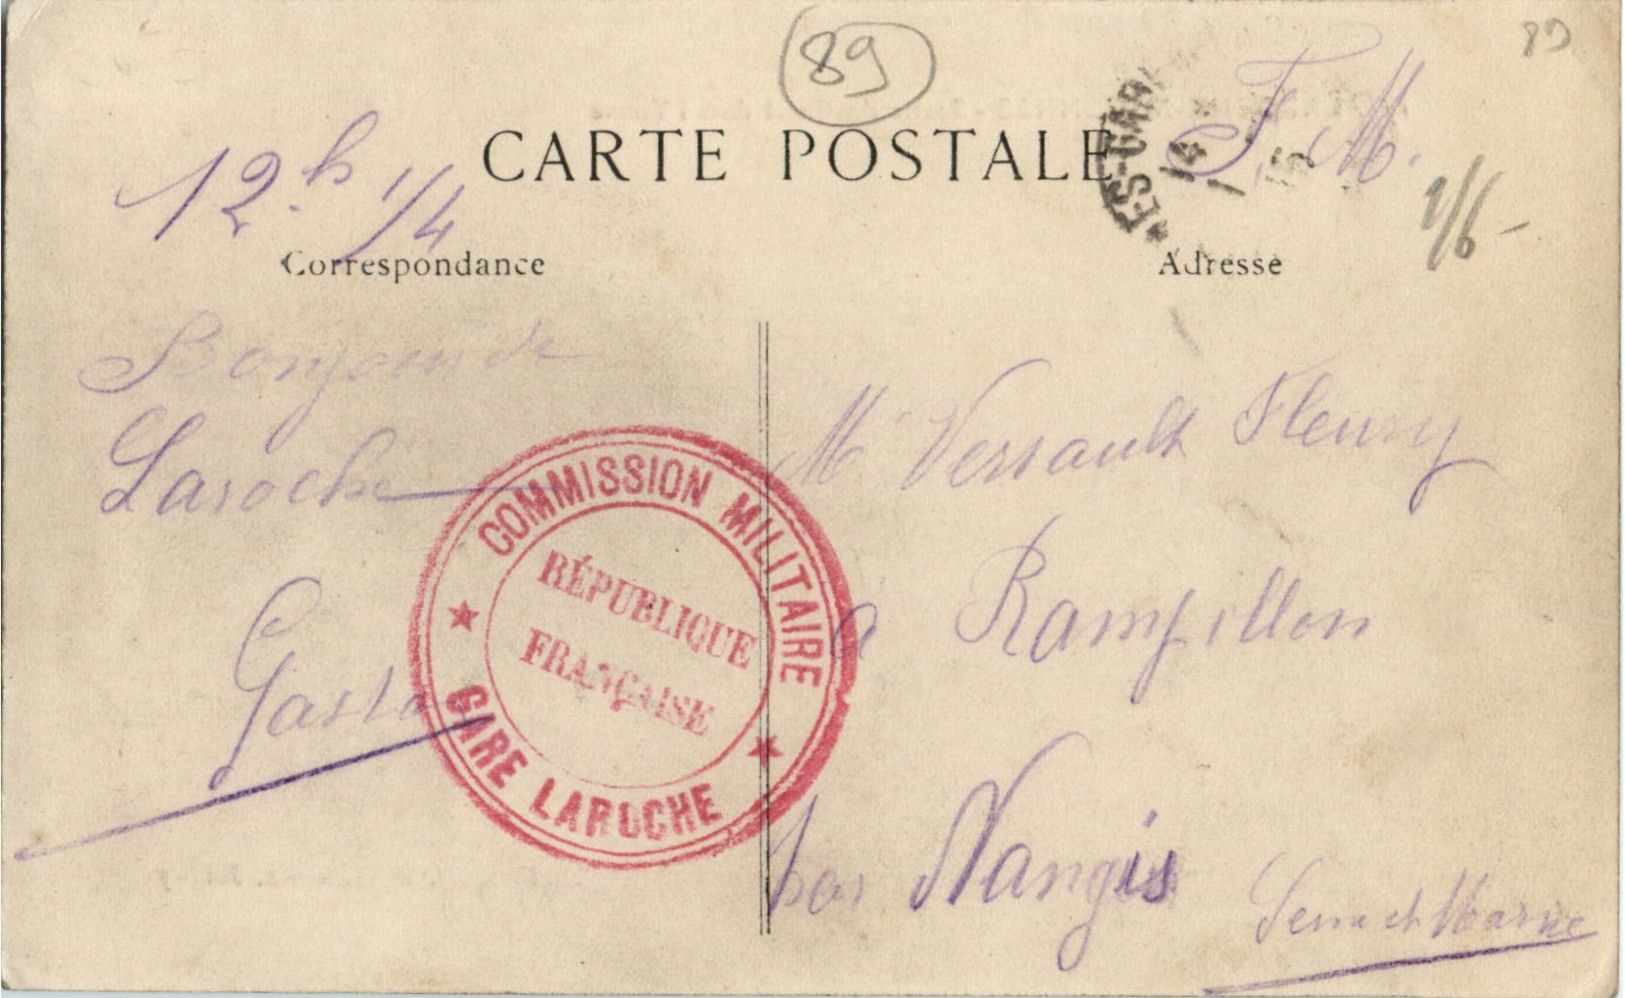 89
89
CARTE POSTALE
F. M.
12.h 1/4
1/6-
ES-GARE
14 1 16
Correspondance
Adresse
Bonjour de
Laroche
Gaston
COMMISSION MILITAIRE
RÉPUBLIQUE
FRANÇAISE
GARE LAROCHE
Mr Versault Fleury
a Rampillon
par Nangis
Seine et Marne